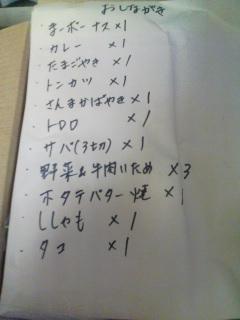 おしながき
・まーボーナス×1
・カレー ×1
・たまごやき ×1
・トンカツ ×1
・さんまかばやき×1
・トロロ ×1
・サバ(3切) ×1
・野菜&牛肉いため ×3
・ホタテバター焼 ×1
・ししゃも ×1
・タコ ×1